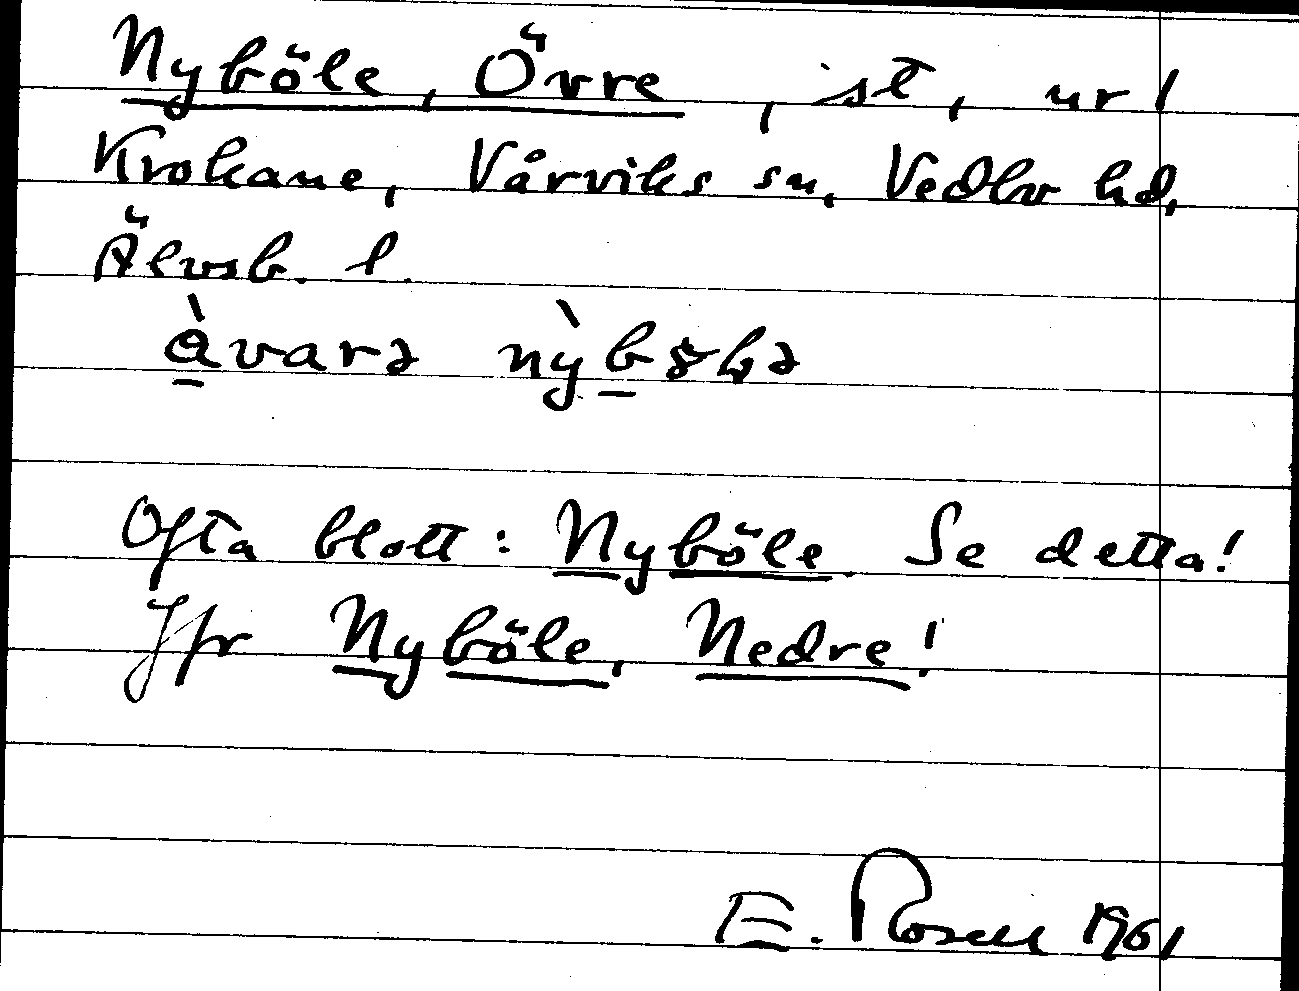 Nyböle, Övre, st, ur 1
Krokane, Vårviks sn, Vedbo hd,
Älvsb. l.
Ofta blott: Nyböle. Se detta!
Jfr Nyböle, Nedre!
E. Rosell 1961